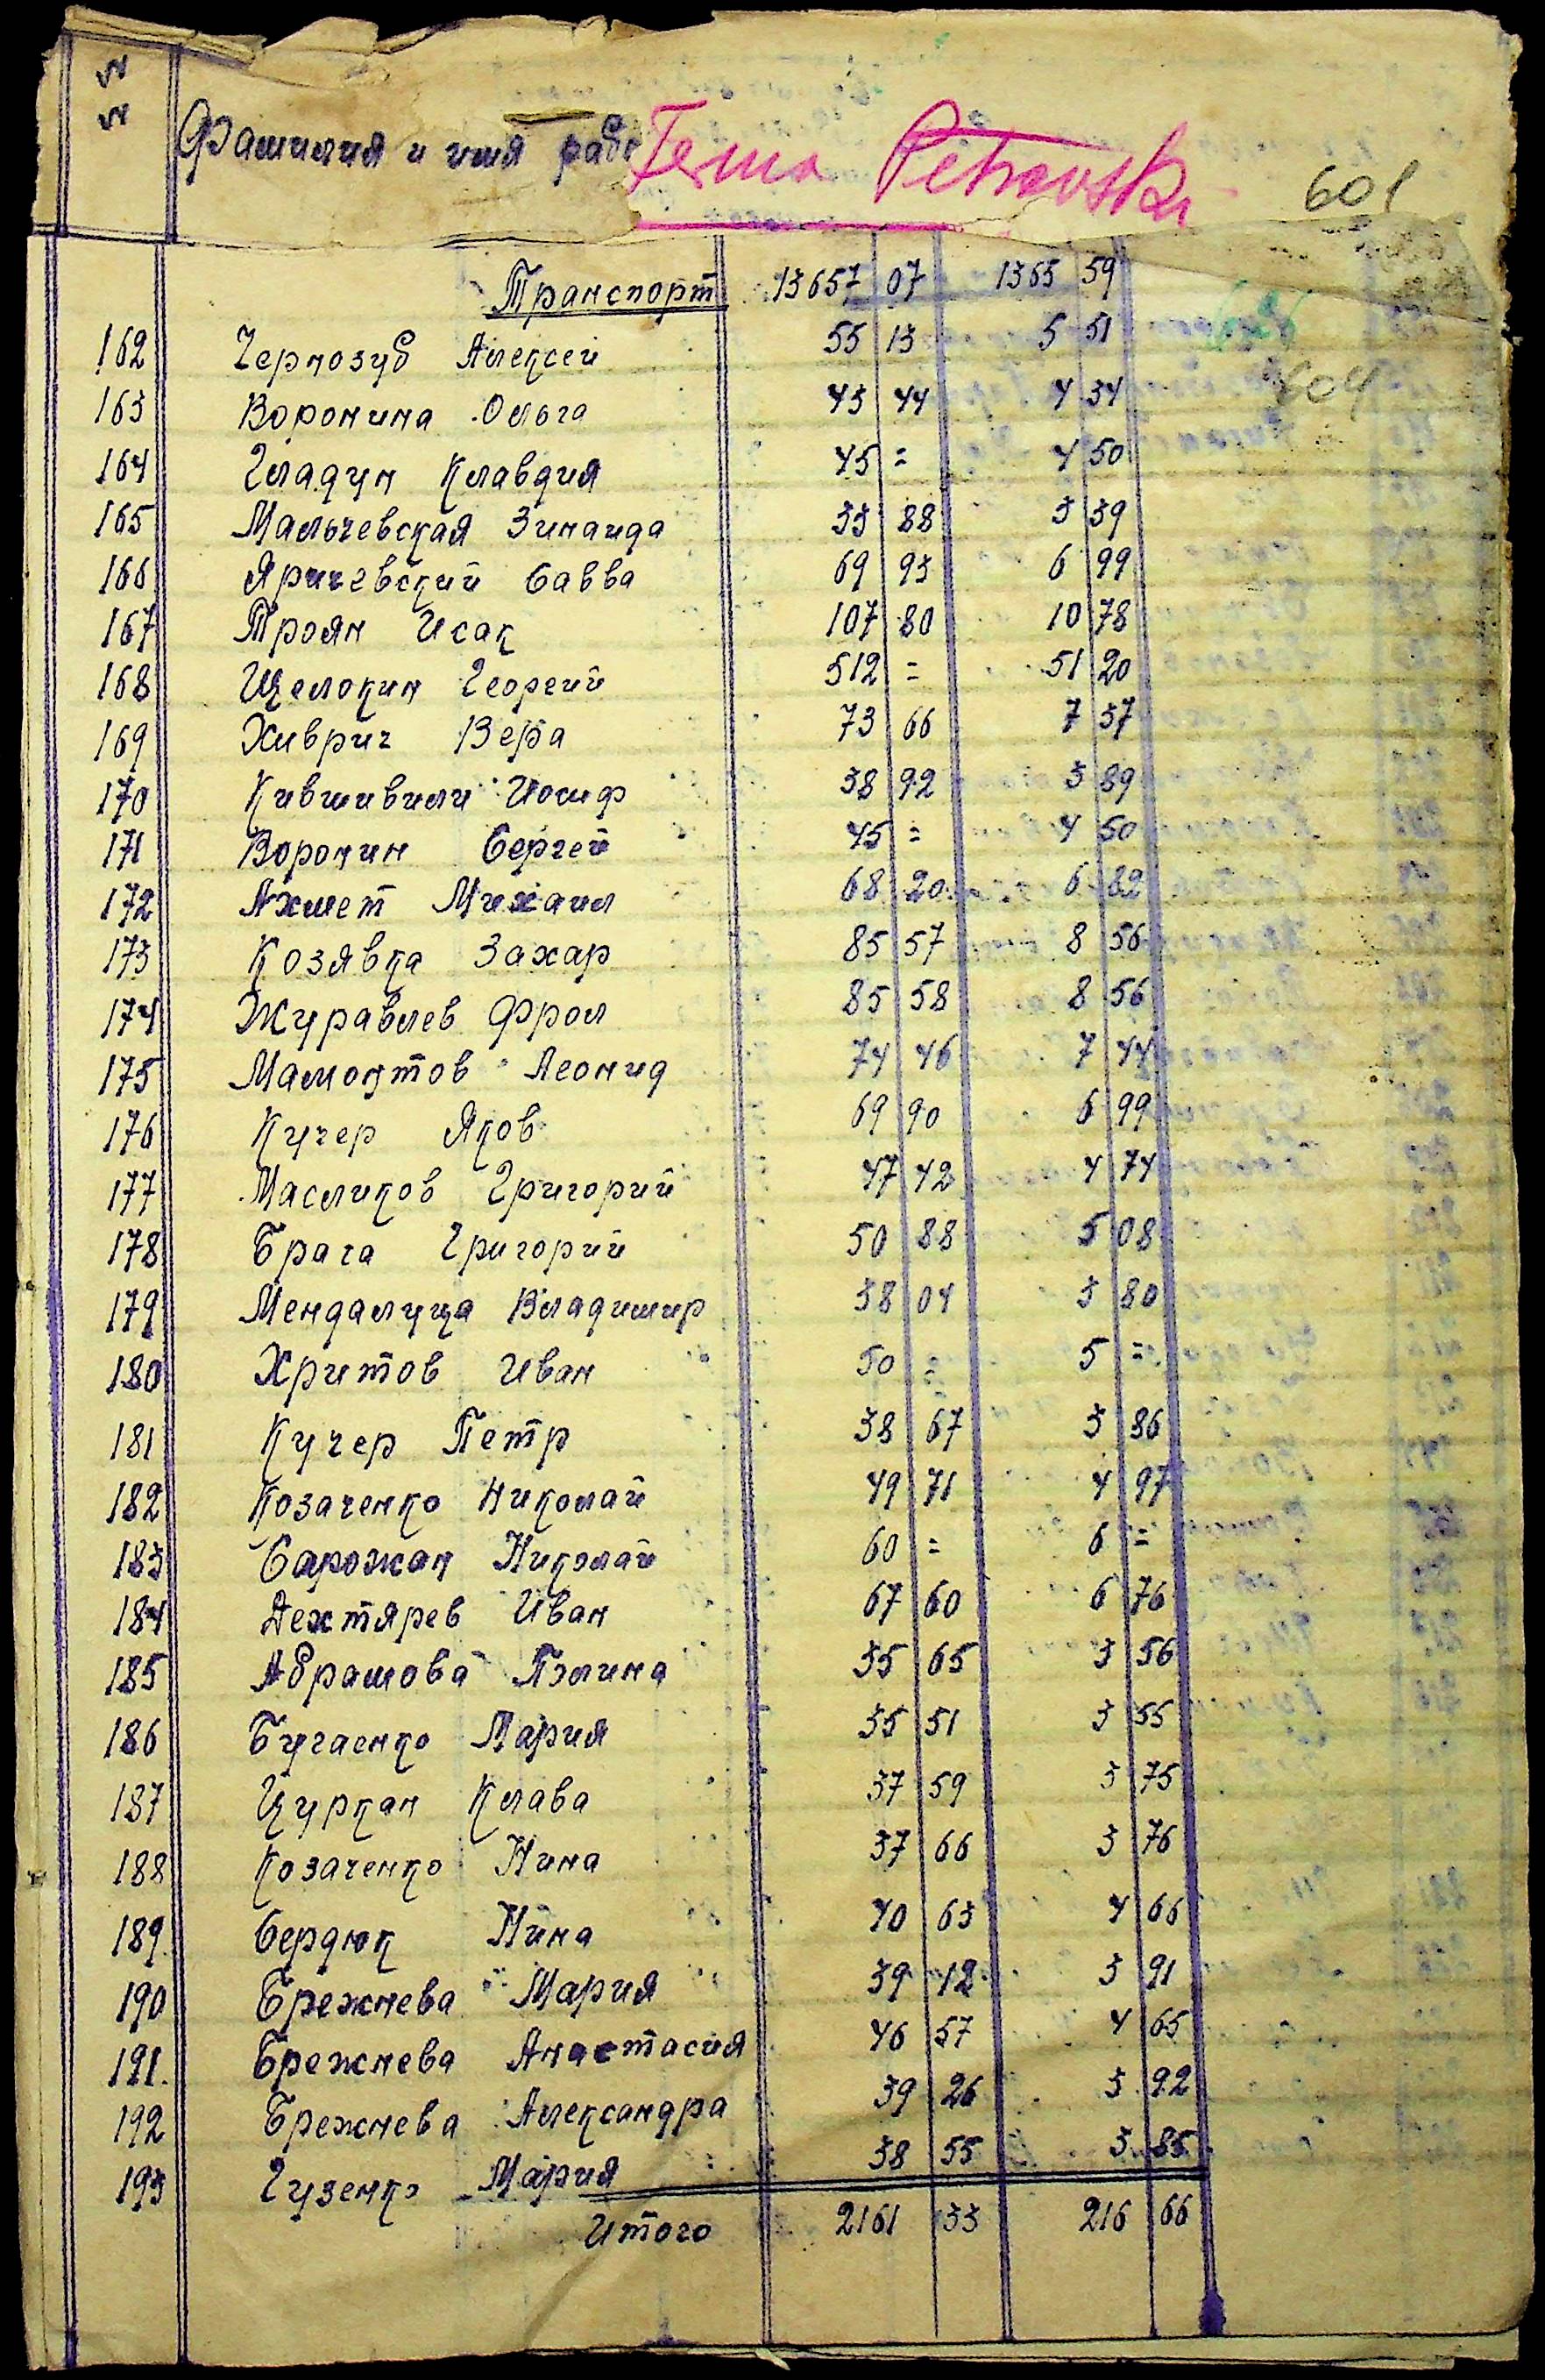 № №
Фамилия и имя раб
Ferma Petrovski
601
Транспорт 13657 07 1365 59
162 Чернозуб Алексей 55 13 5 51
163 Воронина Ольга 43 44 4 34
604
164 Гладун Клавдия 45 = 4 50
165 Мальчевская Зинаида 33 88 3 39
166 Яричевский Савва 69 93 6 99
167 Троян Исак 107 80 10 78
168 Щелокин Георгий 512 = 51 20
169 Хиврич Вера 73 66 7 37
170 Кившивили Иосиф 38 92 3 89
171 Воронин Сергей 45 = 4 50
172 Ахмет Михаил 68 20 6 82
173 Козявка Захар 85 57 8 56
174 Журавлев Фрол 85 58 8 56
175 Мамонтов Леонид 74 46 7 44
176 Кучер Яков 69 90 6 99
177 Масликов Григорий 47 42 4 74
178 Брага Григорий 50 88 5 08
179 Мендалуца Владимир 38 04 3 80
180 Хритов Иван 50 = 5 =
181 Кучер Петр 38 67 3 86
182 Козаченко Николай 49 71 4 97
183 Сарожан Николай 60 = 6 =
184 Дехтярев Иван 67 60 6 76
185 Абрамова Полина 35 65 3 56
186 Бугаенко Мария 35 51 3 55
187 Цуркан Клава 37 59 3 75
188 Козаченко Нина 37 66 3 76
189 Сердюк Нина 40 63 4 66
190 Брежнева Мария 39 12 3 91
191. Брежнева Анастасия 46 57 4 65
192 Брежнева Александра 39 26 3 92
193 Гузенко Мария 38 55 3 85
Итого 2161 33 216 66